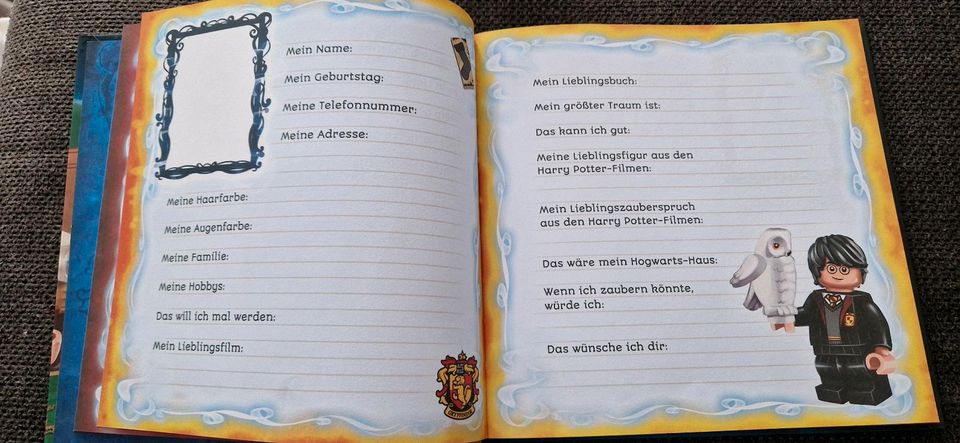 Mein Name:
Mein Geburtstag:
Meine Telefonnummer:
Meine Adresse:
Meine Haarfarbe:
Meine Augenfarbe:
Meine Familie:
Meine Hobbys:
Das will ich mal werden:
Mein Lieblingsfilm:
GRYFFINDOR
Mein Lieblingsbuch:
Mein größter Traum ist:
Das kann ich gut:
Meine Lieblingsfigur aus den
Harry Potter-Filmen:
Mein Lieblingszauberspruch
aus den Harry Potter-Filmen:
Das wäre mein Hogwarts-Haus:
Wenn ich zaubern könnte,
würde ich:
Das wünsche ich dir:
kleinanzeigen